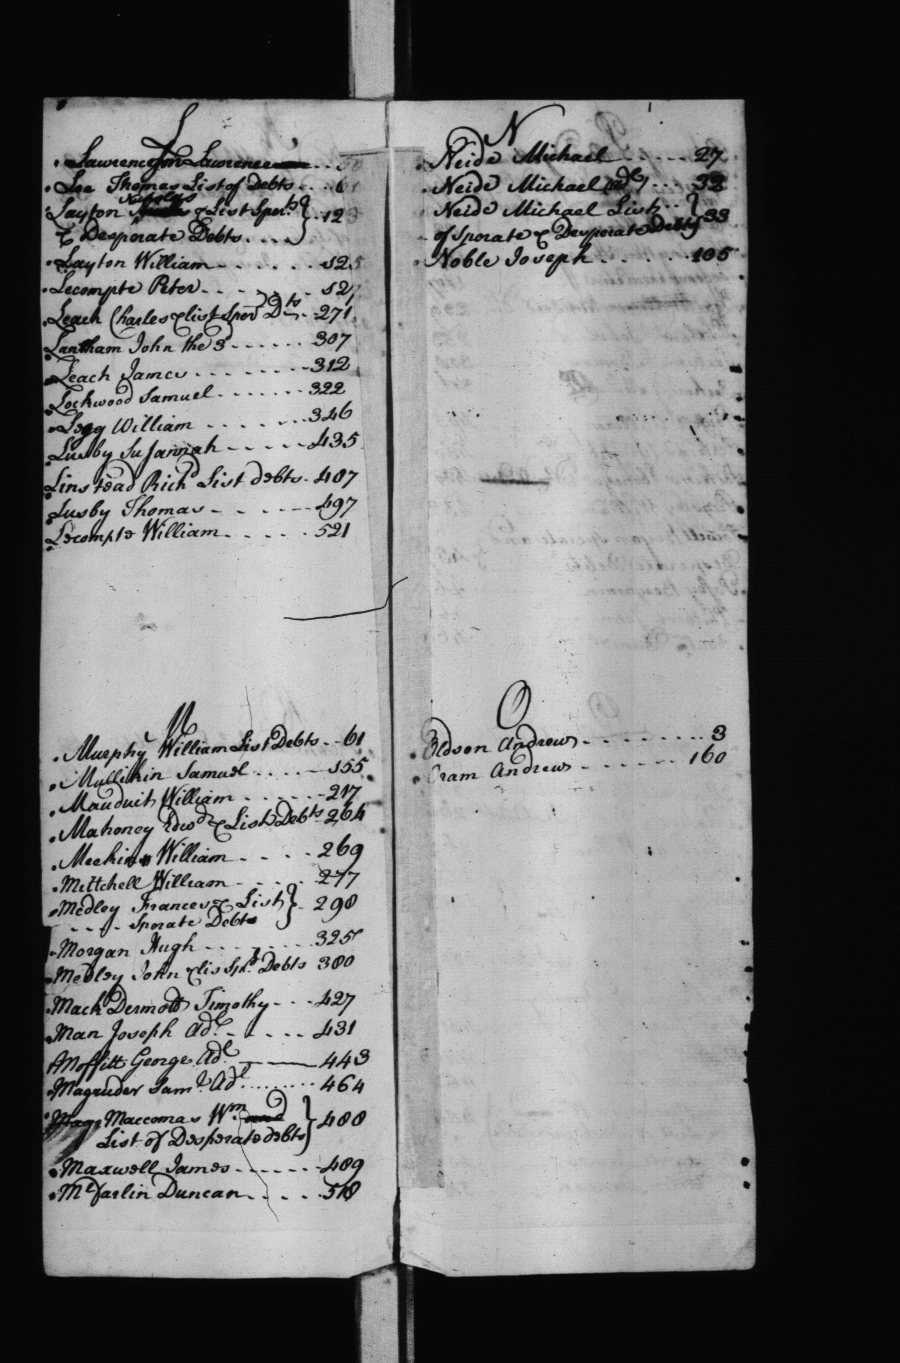 L
Lawrenson Lawrence
Lee Thomas List of Debts . . . 61
Layton Nicholas & List Sper.s . . 12
& Desperate Debts . . . .
Layton William . . . . . . 125
Lecompte Peter . . . . 127
Leach Charles & List Sper.d D.ts . 271
Lantham John the 3 . . . . . . 307
Leach James . . . . . . . . 312
Lockwood Samuel . . . . . . . 322
Legg William . . . . . . . 346
Lusby Susannah . . . . . . 435
Linstead Rich.d List debts . 487
Lusby Thomas . . . . . 497
Lecompte William . . . . . 521
M
Murphy William List Debts . . 61
Mullikin Samuel . . . . . 155
Mauduit William . . . . . . 217
Mahoney Edw.d & List Debts . 264
Meekins William . . . . 269
Mittchell William . . . . 277
Medley Frances & List . 298
. . . . Sperate Debts
Morgan Hugh . . . . . . 325
Medley John & Lis Sp.r Debts 380
Mach Dermott Timothy . . . 427
Man Joseph Ad.l . . . . . 431
Moffitt George Ad.l 443
Magruder Sam.l Ad.l . . . . . . . 464
Maccomas W.m 488
List of Desperate debts
Maxwell James . . . . . . . 489
M.cfarlin Duncan . . . . . 518
N
Neide Michael . . . . . . 27
Neide Michael ad.l . . . 32
Neide Michael List . . 33
of Sperate & Desperate Debts
Noble Joseph . . . . . . 105
O
Oldson Andrew . . . . . . . . . 3
Oram Andrew . . . . . . . 160